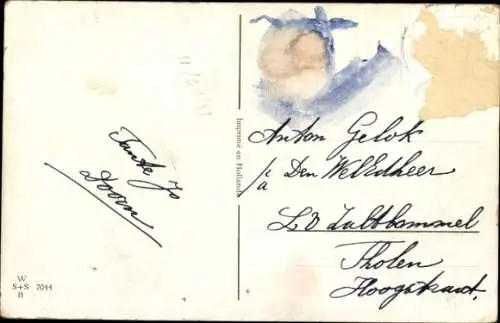 Tante Jo
Doorn
W
S+S 7044
B
Imprimé en Hollande
Anton Gelok
c/a Den WelEdHeer
L v Zaltbommel
Tholen
Hoogstraat,